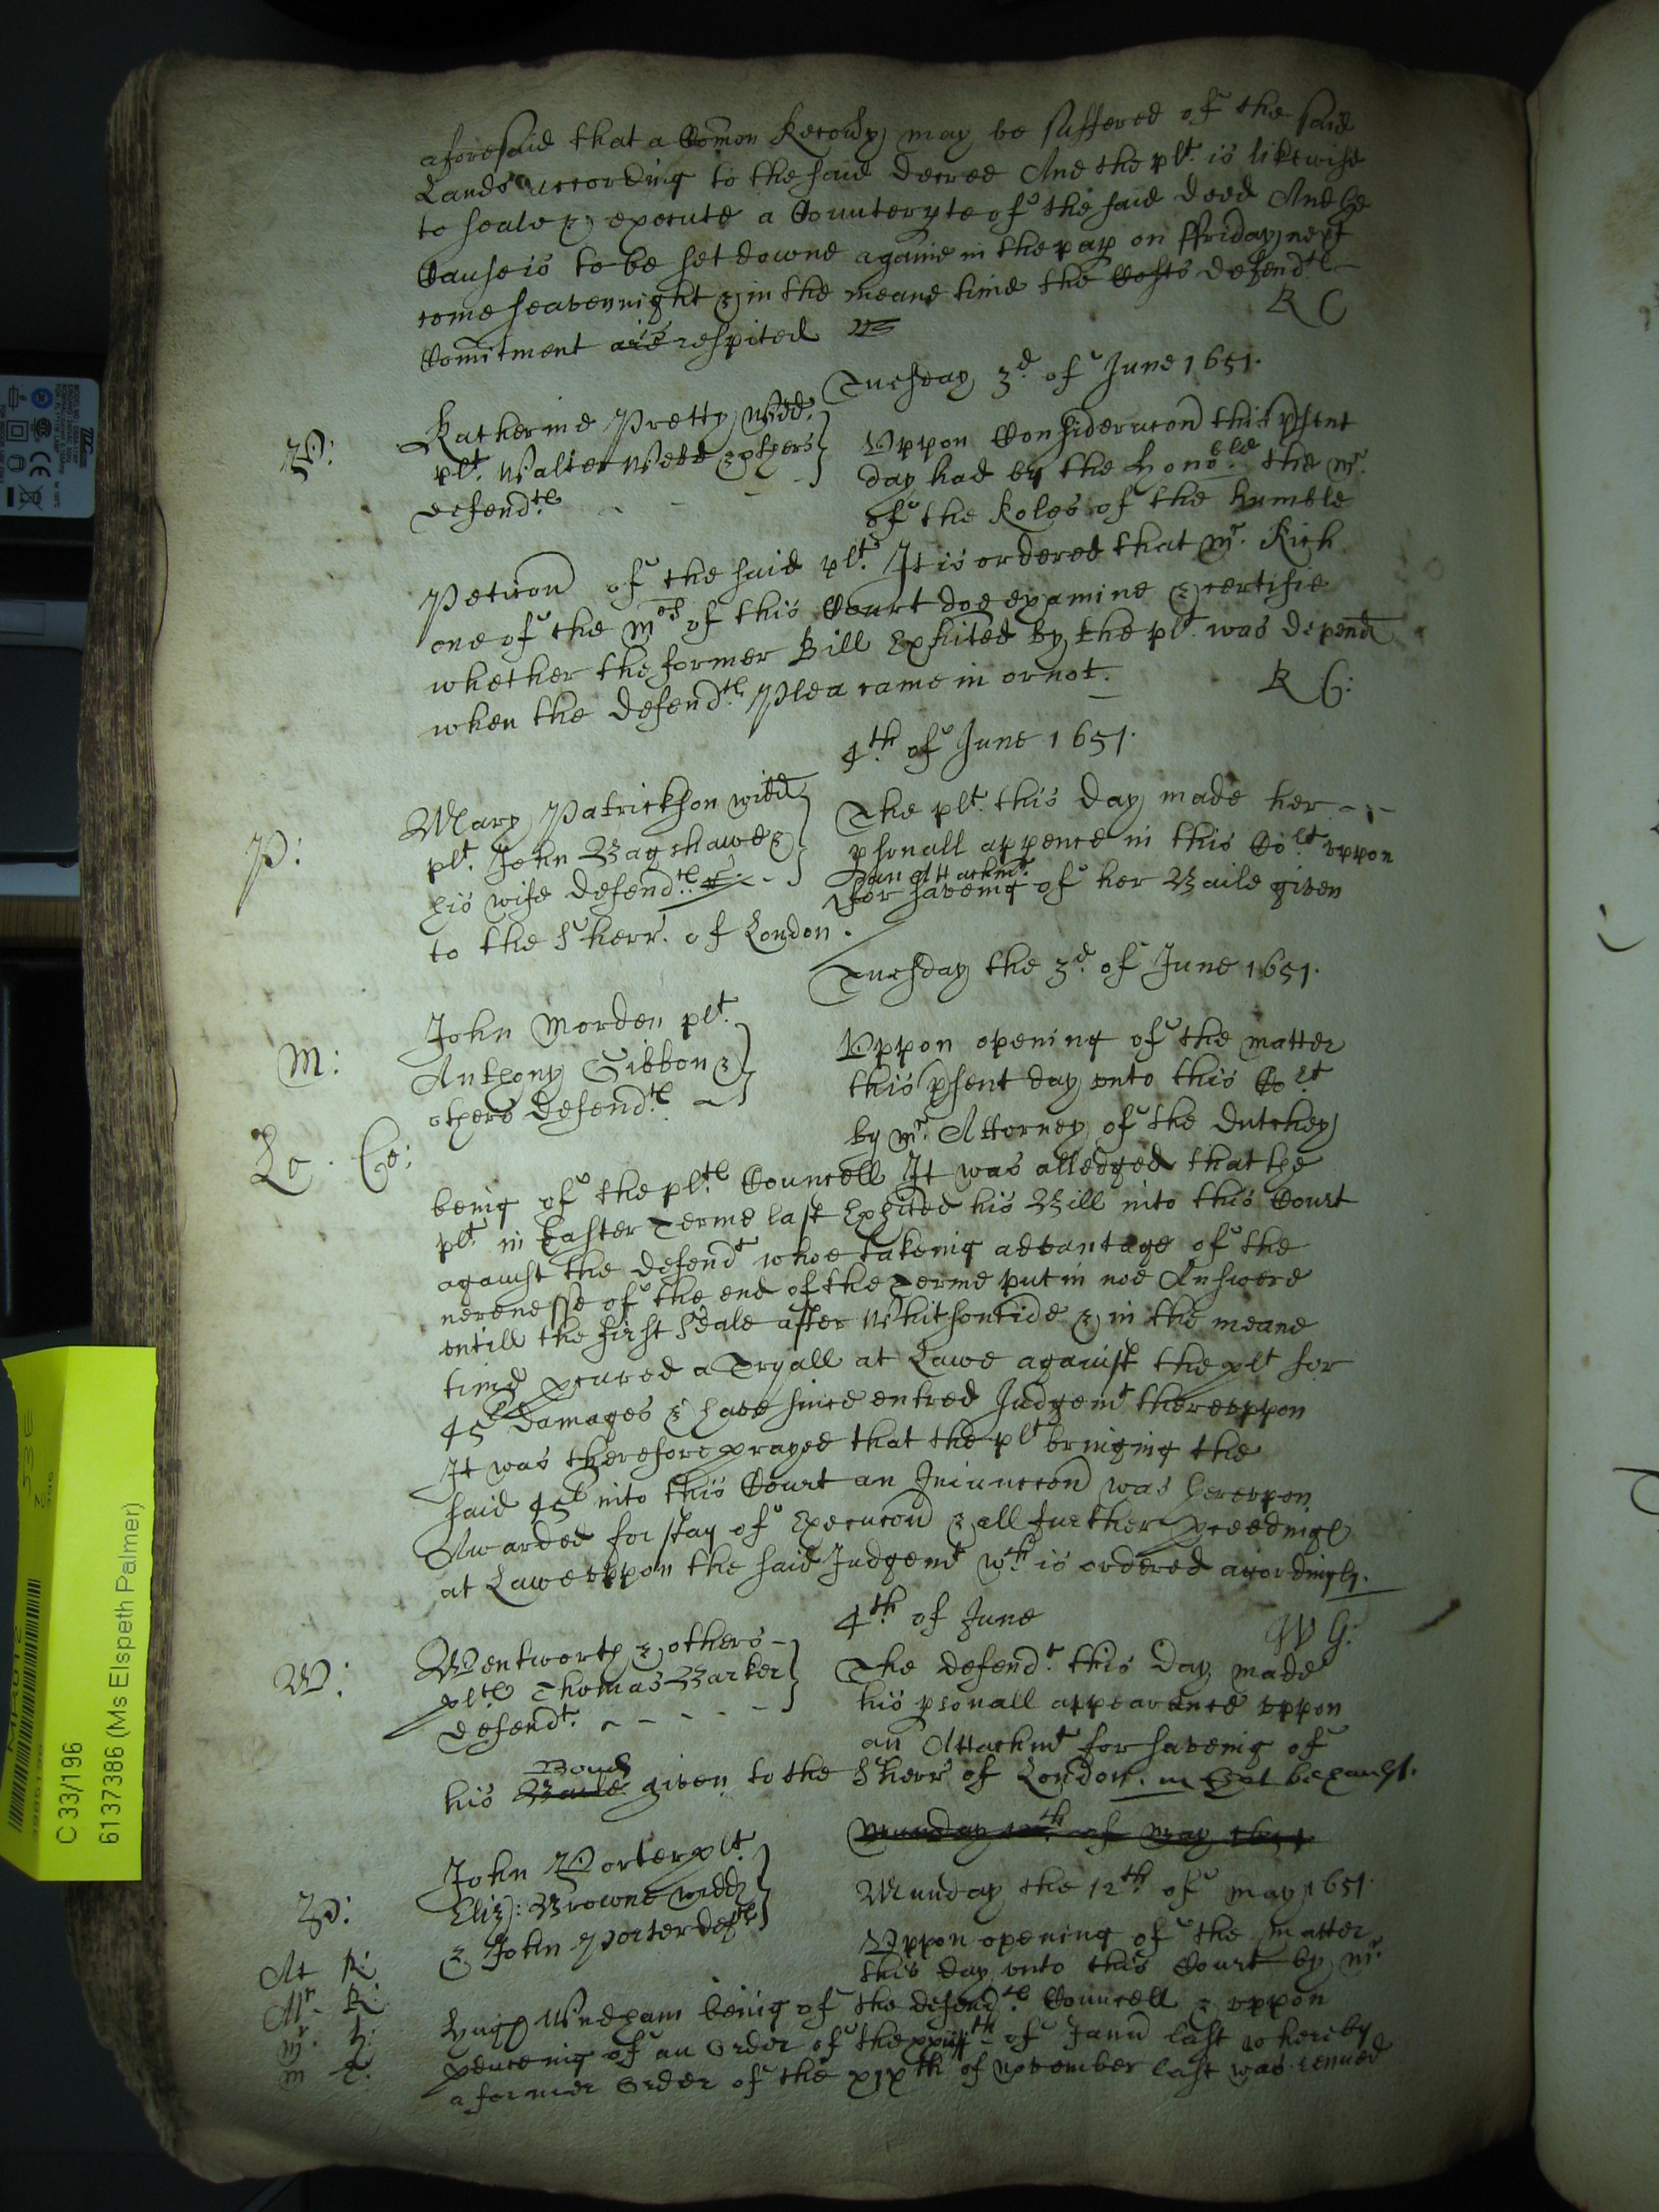 aforesaid that a Comon Recovy may be suffered of the said
Lands according to the said decree And the plt. is likewise
to seale & execute a Counterpte of the said deed And the
Cause is to be set downe againe in the pap on ffriday next
come seavennight & in the meane time the Costs defendts
Comitment are is respited
R C
Tuesday 3d. of June 1651.
P:
Katherine Pretty Widd.
plt. Walter Webb & others
defendts
Uppon Consideracon this psent
day had by the Honoble the Mr.
of the Roles of the humble
Peticon of the said plt. It is ordered that Mr. Rich
one of the Mrs of this Court doe examine & certifie
whether the former Bill Exhited by the plt. was depend
when the defendts Plea came in or not.
R C:
4th of June 1651.
P:
Mary Patrickson widd
plt. John Bagshawe &
his wife defendts
The plt. this day made her
psonall appence in this Cort uppon
an Attachmt.
for saveing of her Baile given
to the Sherr. of London.
Tuesday the 3d. of June 1651.
M:
Le. Ce:
John Morden plt.
Anthony Gibbon &
others defendts
Uppon opening of the matter
this psent day unto this Cort
by Mr. Attorney of the Dutchey
being of the plts Councell It was alledged that the
plt. in Easter Terme last Exhited his Bill into this Court
against the defendt whoe takeing advantage of the
nerenesse of the end of the Terme put in noe Answere
untill the first Seale after Whitsontide & in the meane
time pcured a Tryall at Lawe against the plt for
45l Damages & have since entred Judgemt thereuppon
It was therefore prayed that the plt bringing the
said 45l into this Court an Iniunccon was hereupon
Awarded for stay of Execucon & all further pceedings
at Lawe uppon the said Judgemt wch is ordered accordingly.
W G:
4th of June
W:
Wentworth & others
plts Thomas Barker
defendt.
The defendt. this day made
his psonall appearance uppon
an Attachmt for saveing of
Bond
his Baile given to the Sherr of London.
Munday 12th of May 1651
P:
At R:
Mr R:
Mr. H:
M T:
John Porter plt.
Eliz: Browne widd
& John Porter defts
Munday the 12th of May 1651.
Uppon opening of the matter
this day unto this Court by Mr.
Hugh Windham being of the defendts Councell & uppon
of an Order of the xxiijth of Janu last whereby
a former Order of the xixth of November last was